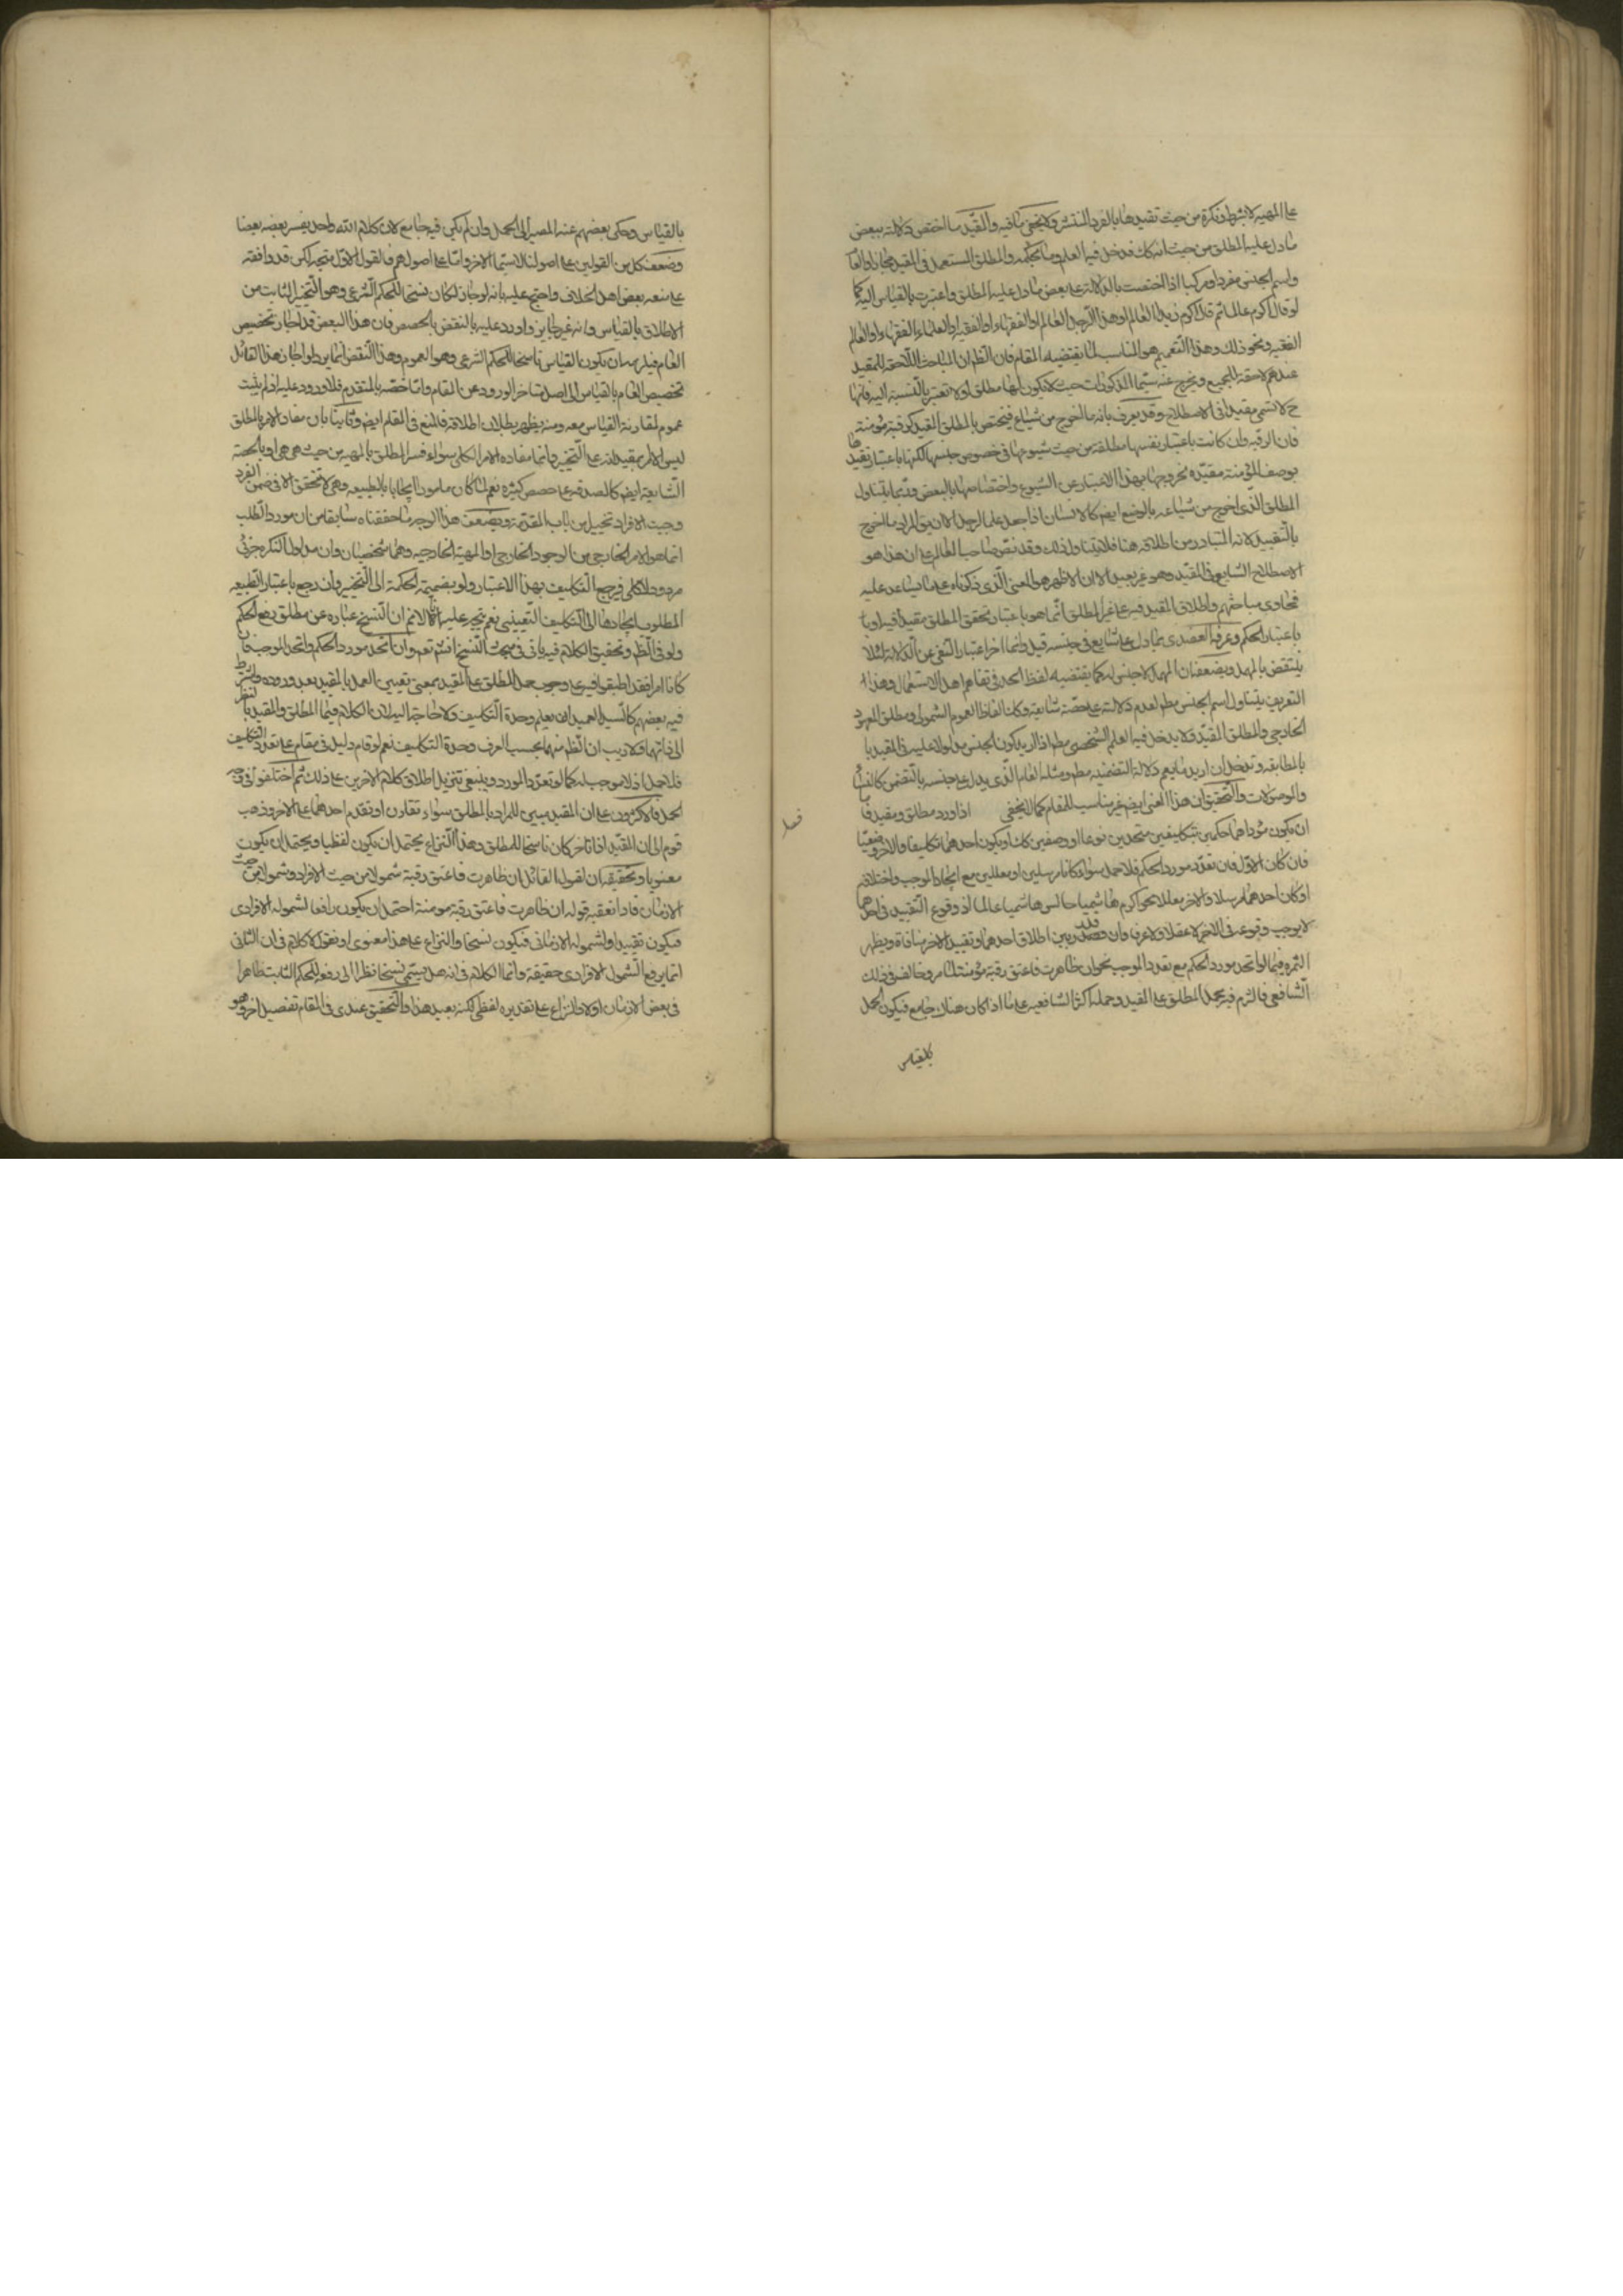 على المهية لا بشرط نكرة من حيث تقيدها بالفرد المنتشر ولا يخفى ما فيه والمقيد ما اختص دلالته ببعض
ما دل عليه المطلق من حيث انه كك فدخل فيه العلم وما بحكمه والمطلق المستعمل في المقيد مجازا والعام
واسم الجنس مفردا ومركبا اذا اختصت بالدلالة على بعض ما دل عليه المطلق واعتبرت بالقياس اليه كما
لو قال اكرم عالما ثم قال اكرم زيدا العالم او هذا الرجل العالم او الفقهاء او الفقيه او العلماء الفقهاء او العالم
الفقيه ونحو ذلك وهذا التعميم هو المناسب لما يقتضيه المقام فان الظ ان المباحث اللاحقة للمقيد
عندهم لاحقة للجميع ويخرج عنه ستم المذكورات حيث لا يكون لها مطلق او لا تعتبر بالنسبة اليه فانها
ح لا تسمى مقيدا في الاصطلاح وقد يعرف بانه ما اخرج من شياع فيختص بالمطلق المقيد كرقبة مؤمنة
فان الرقبة وان كانت باعتبار نفسها مطلقة من حيث شيوعها في خصوص جنسها لكنها باعتبار تقييدها
بوصف المؤمنة مقيدة لخروجها بهذا الاعتبار عن الشيوع واختصاصها بالبعض وربما يتناول
المطلق الذي اخرج من شياعه بالوضع ايضا كالانسان اذا جعل علما لرجل الا ان يق المراد ما اخرج
بالتقييد لانه المتبادر من اطلاقه هنا فلا يتناول ذلك وقد نص صاحب المعالم على ان هذا هو
الاصطلاح الشايع في المقيد وهو غير بعيد الا ان الاظهر هو المعنى الذي ذكرناه على ما يساعد عليه
فحاوى مباحثهم واطلاق المقيد فيه على غير المطلق انما هو باعتبار تحقق المطلق مقيدا فيه او با
باعتبار الحكم وعرفه العضدى بما دل على شايع في جنسه قيد وانما اخر اعتبار النفي عن الدلالة لئلا
ينتقض بالمهمل ويضعفه ان المهمل لا جنس له كما يقتضيه لفظ الحد في تفاهم اهل الاستعمال وهذا
التعريف يتناول اسم الجنس مط لعدم دلالته على حصة شايعة وكذا الفاظ العموم الشمولى ومطلق المعهود
الخارجي والمطلق المقيد ولا يدخل فيه العلم الشخصي مط اذا اريد بكون الجنس مدلولا عليه في المقيد با
بالمطابقة وتدخل ان اريد ما يعم دلالة التضمنية مط ومثله العام الذي يدل على جنسه بالتضمن كالنساء
والموصولات والتحقيق ان هذا المعنى ايضا غير مناسب للمقام كما لا يخفى اذا ورد مطلق ومقيد فا
فصل
ان يكون مؤداهما حكمين تكليفين متحدين نوعا او وصفين كك او يكون احدهما تكليفا والاخر وضعيا
فان كان الاول فان تعدد مورد الحكم فلا حمل سواء كانا مرسلين او معللين مع اتحاد الموجب واختلافه
او كان احدهما مرسلا والاخر معللا نحو اكرم هاشميا جالس هاشميا عالما اذ وقوع التقييد في احدهما
لا يوجب وقوعه في الاخر لا عقلا ولا عرفا وان بين اطلاق احدهما وتقييد الاخر منافاة ويظهر
الثمرة فيما لو اتحد مورد الحكم مع تعدد الموجب نحو ان ظاهرت فاعتق رقبة مؤمنة وخالف في ذلك
الشافعي فالتزم فيه بحمل المطلق على المقيد وحمله اكثر الشافعية على ما اذا كان هناك جامع فيكون الحمل
بالقياس
بالقياس وحكى بعضهم عنه المصير الى الحمل وان لم يكن فيه جامع لان كلام الله واحد يفسر بعضه بعضا
وضعف كل من القولين على اصولنا لا سيما الاخر واما على اصولهم فالقول الاول متجه لكن قد وافقه
على منعه بعض اهل الخلاف واحتج عليه بانه لو جاز لكان نسخا للحكم الشرعي وهو التخيير الثابت من
الاطلاق بالقياس وانه غير جايز واورد عليه بالنقض بالمخصص فان هذا البعض قد اجاز تخصيص
العام فيلزمه ان يكون القياس ناسخا للحكم الشرعي وهو العموم وهذا النقض انما يرد لو اجاز هذا القائل
تخصيص العام بالقياس الى اصل متاخر الورود عن العام واما تخصيصه بالمتقدم فلا ورود عليه اذ لم يثبت
عموم لمقارنة القياس معه ومنه يظهر بطلان اطلاقه فالمنع في المقام ايضا وثانيا بان مفاد الامر بالمطلق
ليس الامر بمقيداته على التخيير وانما مفاده الامر الكلي سواء فسر المطلق بالمهية من حيث هي هي او بالحصة
الشايعة ايضا كالصدقه على حصص كثيرة نعم لما كان مامورا بايجاب الطبيعة وهي لا تتحقق الا في ضمن الفرد
وجبت الافراد تخييرا من باب المقدمة ويضعف هذا الوجه ما حققناه سابقا من ان مورد الطلب
انما هو الامر الخارجي من الوجود الخارجي او المهية الخارجية وهما شخصيان وان مدلول النكرة جزئي
مردد لا كلي فيرجع التكليف بهذا الاعتبار ولو بضميمة الحكمة الى التخيير وان رجع باعتبار الطبيعة
المطلوب ايجادها الى التكليف التعييني نعم يتجه عليه انا لا نم ان النسخ عبارة عن مطلق رفع الحكم
ولو في الظ وتحقيق الكلام فيه ياتي في مبحث النسخ انش تعم وان اتحد مورد الحكم واتحد الموجب فان
كانا امرا فقد اطبقوا فيه على وجوب حمل المطلق على المقيد بمعنى تعيين العمل بالمقيد بعد وروده واشترط
فيه بعضهم كالسيد العميدى ان يعلم وحدة التكليف ولا حاجة اليه لان الكلام فيما المطلق والمقيد بالنظر
الى ذاتهما ولا ريب ان الظ منهما بحسب العرف وحدة التكليف نعم لو قام دليل في مقام على تعدد التكليف
فلا حمل اذ لا موجب له كما لو تعدد المورد وينبغي تنزيل اطلاق كلام الاخرين على ذلك ثم اختلفوا في وجه
الحمل فالاكثرون على ان المقيد يبين المراد بالمطلق سواء تقارن او تقدم احدهما على الاخر وذهب
قوم الى ان المقيد اذا تاخر كان ناسخا للمطلق وهذا النزاع يحتمل ان يكون لفظيا ويحتمل ان يكون
معنويا وتحقيقه ان لقول القائل ان ظاهرت فاعتق رقبة شمولا من حيث الافراد وشمولا من حيث
الازمان فاذا تعقبه قوله ان ظاهرت فاعتق رقبة مومنة احتمل ان يكون رافعا لشموله الافرادى
فيكون تقييدا ولشموله الازماني فيكون نسخا والنزاع على هذا معنوى او نقول لا كلام في ان الثاني
انما يرفع الشمول الافرادى حقيقة وانما الكلام في انه هل يسمى نسخا نظرا الى رفعه للحكم الثابت ظاهرا
في بعض الازمان او لا والنزاع على تقديره لفظي لكنه بعيد هذا والتحقيق عندى في المقام تفصيل اخر وهو